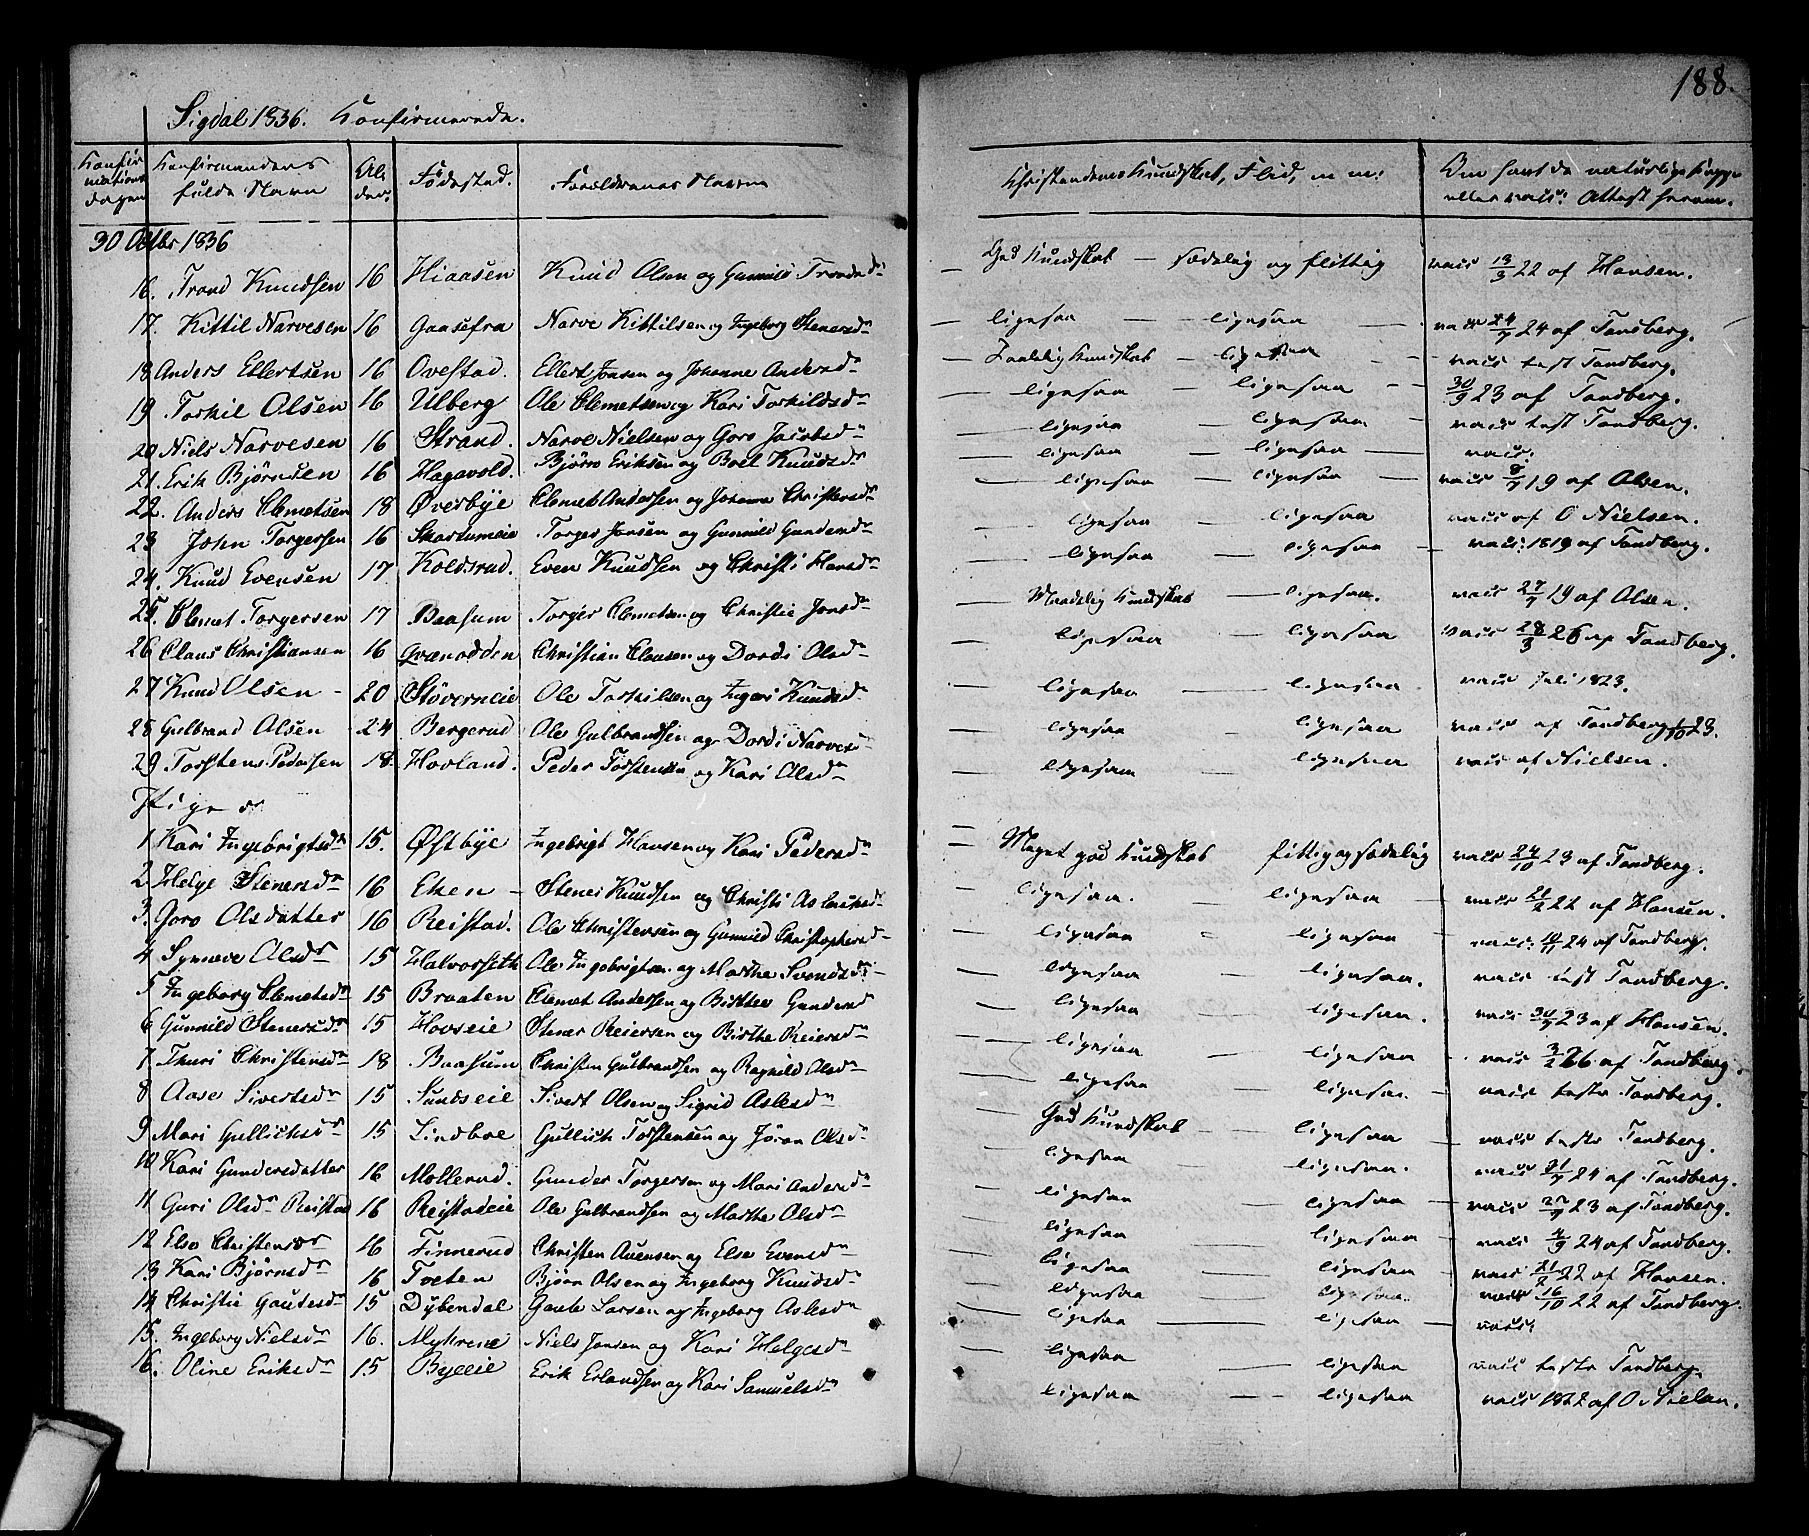 188.
Sigdal 1836. Konfirmerede.
Konfirmationsdagen | Konfirmandens fulde Navn | Alder. | Fødested. | Forældrenes Navn | Christendoms Kundskab, Flid, m m: | Om havt de naturlige Kopper eller vacc: Attest herom.
30 Octbr 1836
16. Trond Knudsen | 16 | Hiaasen | Knud Olsen og Gunnild Trondsdr | God Kundskab — sædelig og flittig | vacc 13/3 22 af Hansen.
17. Kittil Narvesen | 16 | Gaasefra | Narve Kittilsen og Ingeborg Stenersdr | ligesaa — ligesaa — | vacc 24/7 24 af Tandberg.
18 Anders Ellertsen | 16 | Ovestad. | Ellert Jonsen og Johanne Andersdr | Taalelig Kundskab — ligesaa | vacc test Tandberg.
19 Torkil Olsen | 16 | Ulberg | Ole Clemetsen og Kari Torkildsdr | ligesaa — ligesaa | 30/9 23 af Tandberg.
20 Niels Narvesen | 16 | Strand. | Narve Nielsen og Goro Jacobsdr | ligesaa — ligesaa | vacc test Tandberg.
21. Erik Bjørnsen | 16 | Hagavold. | Bjørn Eriksen og Boel Knudsdr | ligesaa — ligesaa | vacc:
22. Anders Clemetsen | 18 | Øverbye | Clemet Andersen og Johanne Christensdr | ligesaa — ligesaa | vacc 8/7 19 af Olsen.
23 John Torgersen | 16 | Skartumeie | Torger Jonsen og Gunnild Gundersdr | ligesaa — ligesaa | vacc af O Nielsen.
24. Knud Evensen | 17. | Koldsrud. | Even Knudsen og Christi Hansdr | ligesaa — ligesaa | vacc: 1819 af Tandberg.
25. Clemet Torgersen | 17 | Baasum | Torger Clemetsen og Christie Jonsdr | Maadelig Kundskab — ligesaa. | vacc 27/7 19 af Olsen.
26 Claus Christiansen | 16 | Grænodden | Christian Clausen og Dordi Olsdr | ligesaa — ligesaa | vacc 28/3 26 af Tandberg.
27 Knud Olsen - | 20 | Støverneie | Ole Torkilsen og Ingari Knudsdr | ligesaa — ligesaa | vacc juli 1823.
28 Gulbrand Olsen | 24 | Bergerud | Ole Gulbrandsen og Dordi Narvesdr | ligesaa — ligesaa | vacc af Tandberg 1/10 23.
29 Torstens Pedersen | 18. | Hovland. | Peder Torstensen og Kari Olsdr | ligesaa — ligesaa | vacc af Nielsen.
Piger
1 Kari Ingebrigtsdr | 15. | Østbye | Ingebrigt Hansen og Kari Pedersdr | Meget god Kundskab flittig og sædelig | vacc 24/10 23 af Tandberg.
2 Helge Stenersdr | 16 | Eken - | Stener Knudsen og Christi Aslaksdr | ligesaa. — ligesaa | vacc 21/2 22 af Hansen.
3. Goro Olsdatter | 16 | Reistad. | Ole Christensen og Gunnild Christophersdr | ligesaa ligesaa | vacc: 10/11 24 af Tandberg.
4 Synneve Olsdr | 15 | Halvorseth | Ole Ingebrigtsen og Marthe Svendsdr | ligesaa — ligesaa. | vacc test Tandberg.
5 Ingeborg Clemetsdr | 15 | Braaten | Clemet Andersen og Birthe Gundersdr | ligesaa — ligesaa. | vacc 30/7 23 af Hansen.
6 Gunnild Stenersdr | 15 | Hovseie | Stener Reiersen og Birthe Reiersdr | ligesaa — ligesaa | vacc 3/2 26 af Tandberg.
7 Thuri Christensdr | 18 | Baasum | Christen Gulbrandsen og Ragnild Olsdr | ligesaa — ligesaa. | vacc teste Tandberg.
8 Aase Sivertsdr | 15 | Sundseie | Sivert Olsen og Sigrid Aslesdr | God Kundskab — ligesaa | vacc teste Tandberg.
9 Mari Gullichsdr | 15 | Lindboe | Gullich Torstensen og Jøran Olsdr | ligesaa — ligesaa. | vacc 21/7 24 af Tandberg.
10 Kari Gundersdatter | 16 | Mollerud. | Gunder Torgersen og Mari Andersdr | ligesaa — ligesaa | vacc 25/7 23 af Tandberg.
11 Guri Olsdr Reistad | 16 | Reistadeie | Ole Gulbrandsen og Marthe Olsdr | ligesaa — ligesaa | vacc 2/9 24 af Tandberg.
12 Else Christensdr | 16 | Finnerud | Christen Auensen og Else Evensdr | ligesaa — ligesaa | vacc 21/2 22 af Hansen.
13 Kari Bjørnsdr | 16 | Tveten | Bjørn Olsen og Ingeborg Knudsdr | ligesaa — ligesaa. | vacc 16/10 22 af Tandberg.
14 Christie Gautesdr | 15 | Dybendal | Gaute Larsen og Ingeborg Aslesdr | ligesaa — ligesaa | vacc:
15. Ingeborg Nielsdr | 16. | Myhrene | Niels Jensen og Kari Helgesdr | ligesaa — ligesaa | vacc teste Tandberg.
16. Oline Eriksdr | 15 | Bylleie | Erik Erlandsen og Kari Samuelsdr | ligesaa — ligesaa | vacc 1822 af O Nielsen.